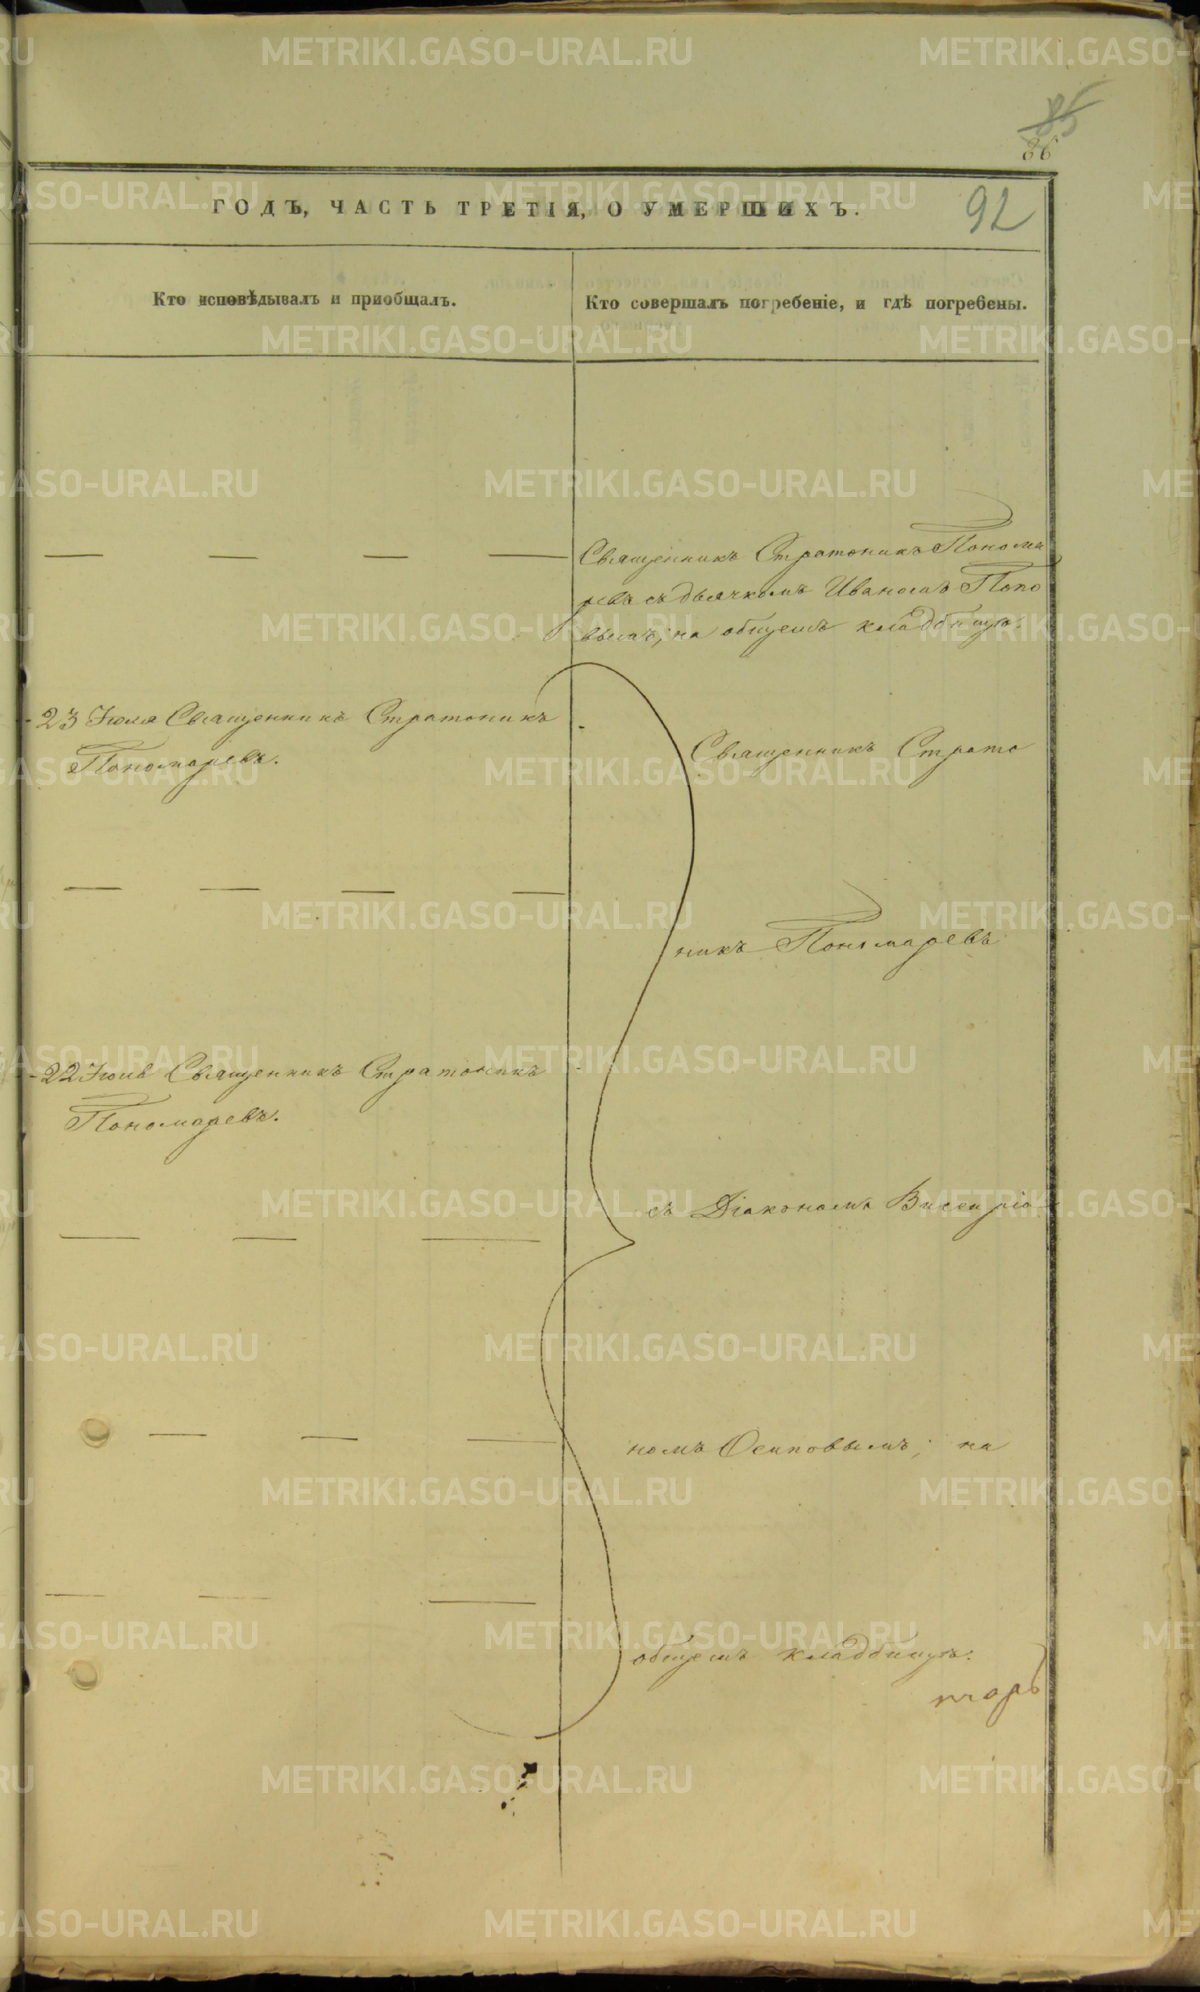 85
86
92
ГОДЪ, ЧАСТЬ ТРЕТІЯ, О УМЕРШИХЪ.
Кто исповѣдывалъ и приобщалъ.
Кто совершалъ погребеніе, и гдѣ погребены.
Священникъ Стратоникъ Понома
ревъ съ дьячкомъ Иваномъ Попо
вымъ; на общемъ кладбищѣ.
23 Іюля Священникъ Стратоникъ
Пономаревъ.
Священникъ Страто
никъ Пономаревъ
22 Іюля Священникъ Стратоникъ
Пономаревъ.
съ Діакономъ Висаріо
номъ Осиповымъ; на
общемъ кладбищѣ.
METRIKI.GASO-URAL.RU